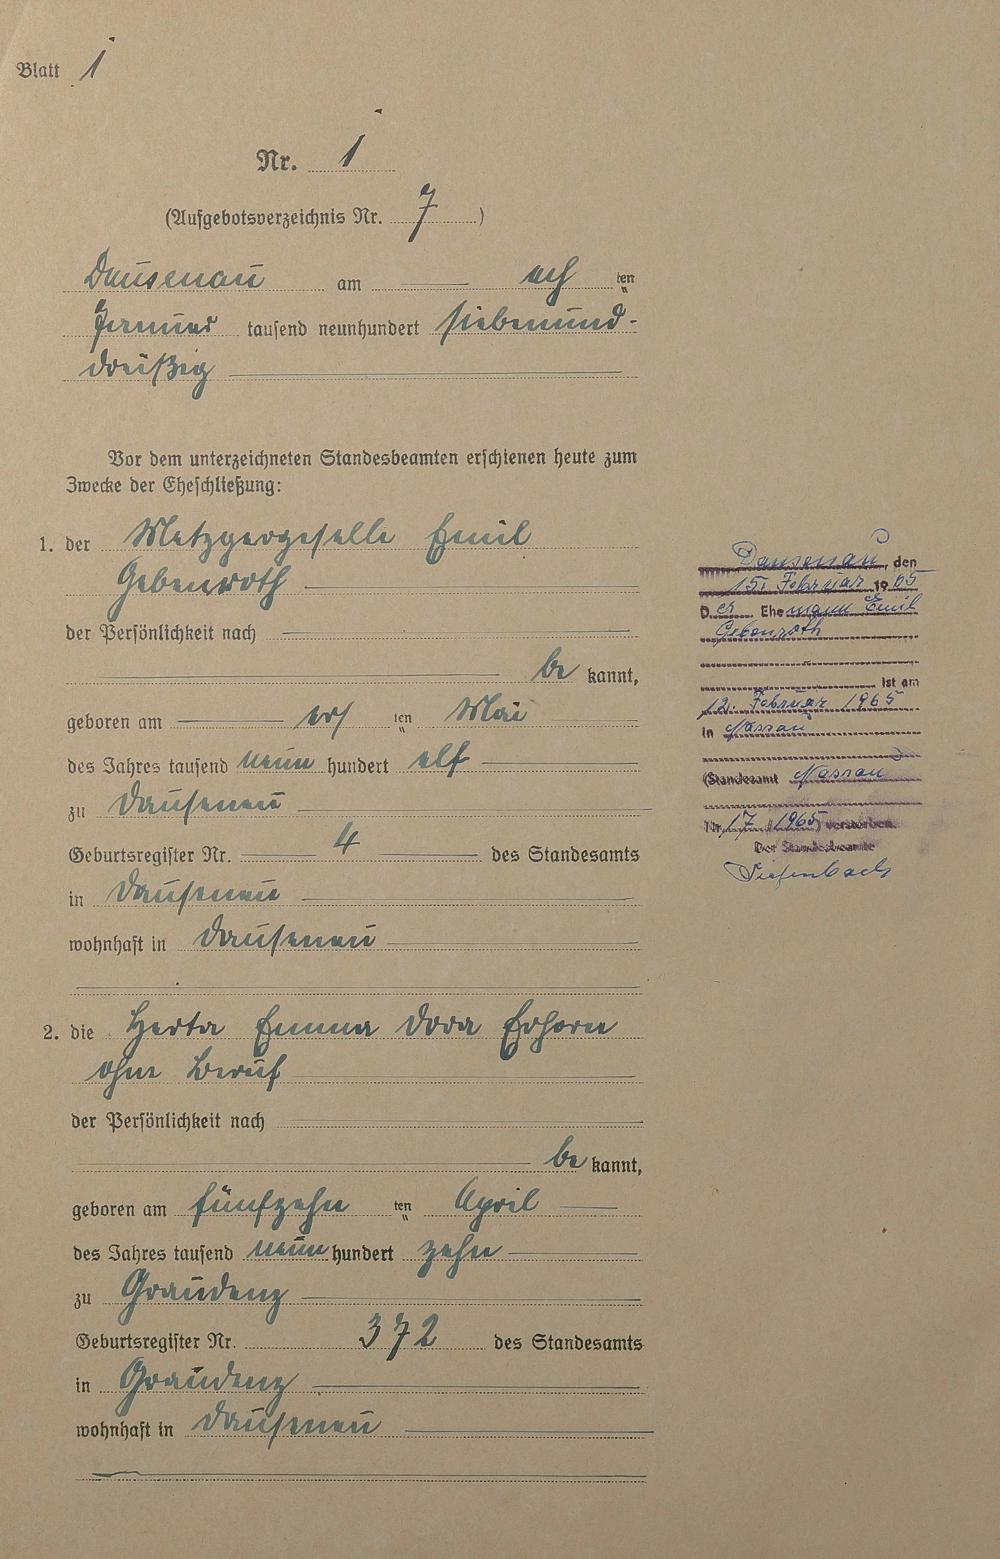 Blatt 1
Nr. 1
(Aufgebotsverzeichnis Nr. 7)
Dausenau am ach ten
Januar tausend neunhundert siebenund-
dreißig
Vor dem unterzeichneten Standesbeamten erschienen heute zum
Zwecke der Eheschließung:
1. der Metzgergeselle Emil
Gebenroth
der Persönlichkeit nach
be kannt,
geboren am ers ten Mai
des Jahres tausend neun hundert elf
zu Dausenau
Geburtsregister Nr. 4 des Standesamts
in Dausenau
wohnhaft in Dausenau
2. die Herta Emma Dora
ohne Beruf
der Persönlichkeit nach
be kannt,
geboren am fünfzehn ten April
des Jahres tausend neun hundert zehn
zu Graudenz
Geburtsregister Nr. 372 des Standesamts
in Graudenz
wohnhaft in Dausenau
Dausenau, den
15. Februar 1965
Der Ehemann Emil
Gebenroth
ist am
12. Februar 1965
in Nassau
(Standesamt Nassau
Nr. 17/1965) verstorben.
Der Standesbeamte
Diefenbach